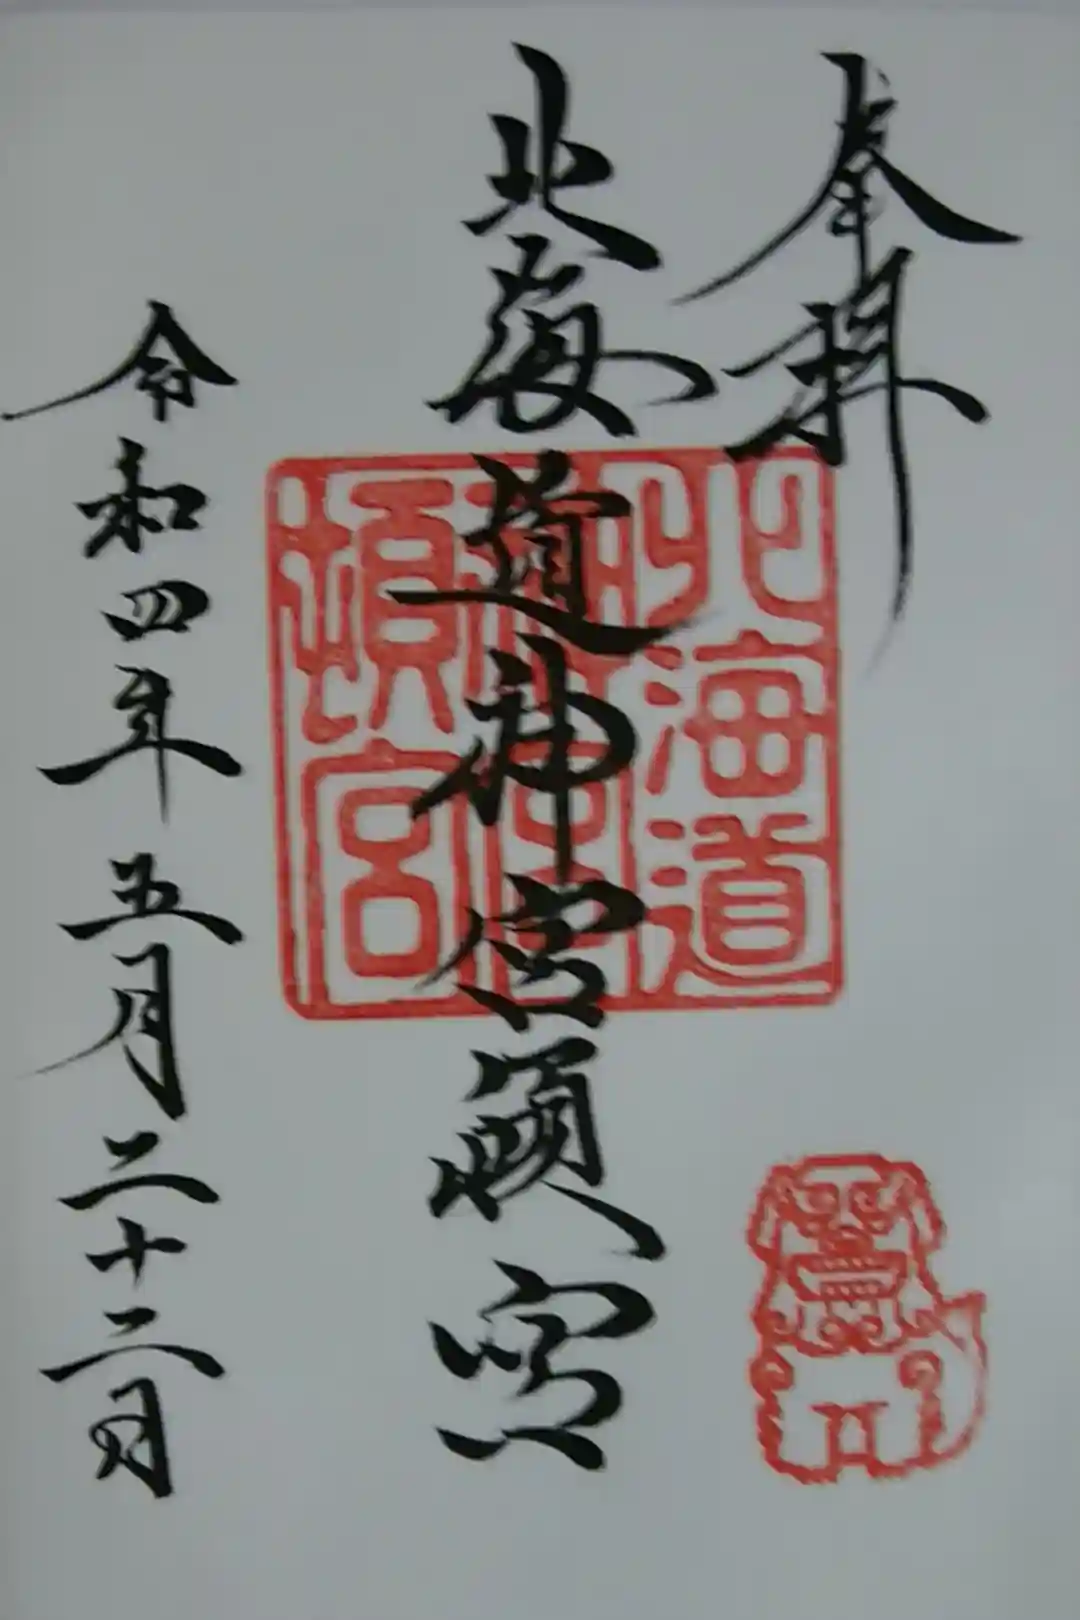 奉拝
北海道神宮頓宮
北海道
神宮
頓宮
令和四年五月二十二日